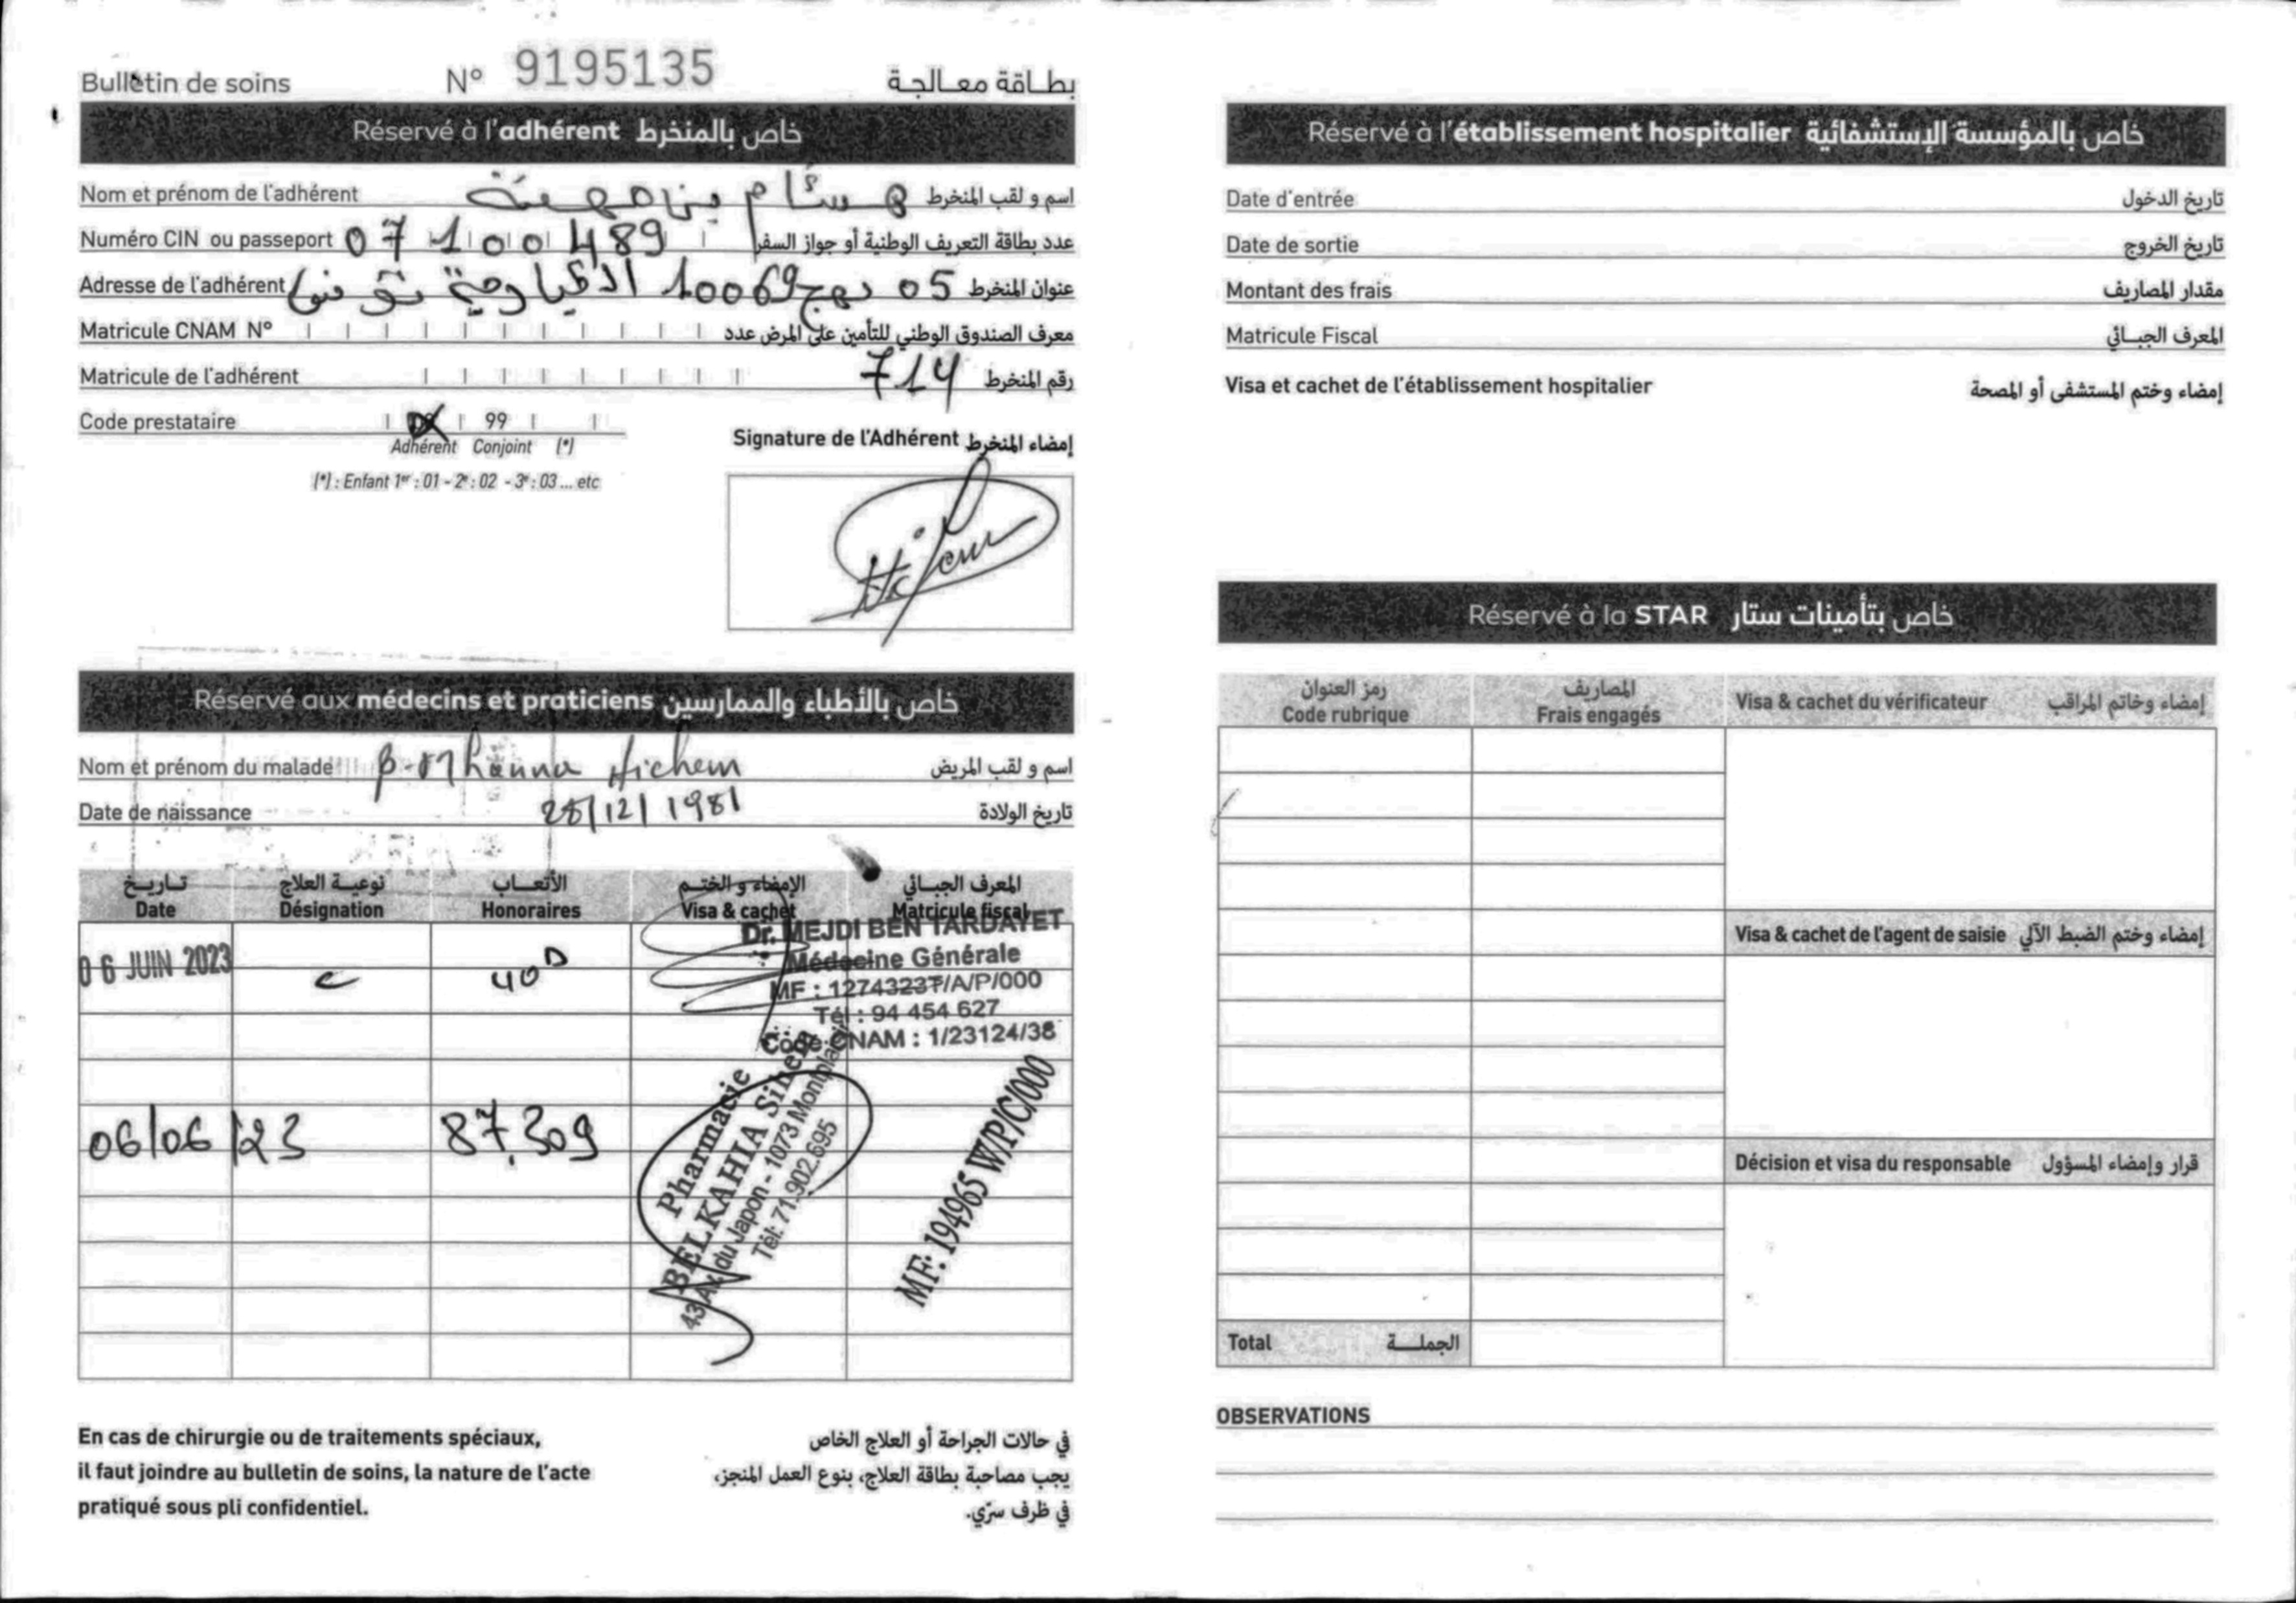 Bulletin de soins N° 9195135 بطاقة معالجة
Réservé à l'adhérent خاص بالمنخرط
Nom et prénom de l'adhérent هشام بن مهنة اسم و لقب المنخرط
Numéro CIN ou passeport 07100489 عدد بطاقة التعريف الوطنية أو جواز السفر
Adresse de l'adhérent 05 نهج 10069 تونس عنوان المنخرط
Matricule CNAM N° معرف الصندوق الوطني للتأمين على المرض عدد
Matricule de l'adhérent 714 رقم المنخرط
Code prestataire 99
Adhérent Conjoint (*)
(*) : Enfant 1er : 01 - 2e : 02 - 3e : 03 ... etc
Signature de l'Adhérent إمضاء المنخرط
Réservé aux médecins et praticiens خاص بالأطباء والممارسين
Nom et prénom du malade B-Mhenna Hichem اسم و لقب المريض
Date de naissance 28/12/1981 تاريخ الولادة
تاريخ نوعية العلاج الأتعاب الإمضاء و الختم المعرف الجبائي
Date Désignation Honoraires Visa & cachet Matricule fiscal
06 JUIN 2023 c 40D
Dr. MEJDI BEN TARDAYET
Médecine Générale
MF : 1274323T/A/P/000
Tél : 94 454 627
Code CNAM : 1/23124/38
06/06/23 87,309
Pharmacie
BELKAHIA Sihem
43 Av. du Japon - 1073 Montplaisir
Tél: 71.902.695
MF: 194965 W/P/C/000
En cas de chirurgie ou de traitements spéciaux,
il faut joindre au bulletin de soins, la nature de l'acte
pratiqué sous pli confidentiel.
في حالات الجراحة أو العلاج الخاص
يجب مصاحبة بطاقة العلاج، بنوع العمل المنجز،
في ظرف سرّي.
Réservé à l'établissement hospitalier خاص بالمؤسسة الإستشفائية
Date d'entrée تاريخ الدخول
Date de sortie تاريخ الخروج
Montant des frais مقدار المصاريف
Matricule Fiscal المعرف الجبائي
Visa et cachet de l'établissement hospitalier إمضاء وختم المستشفى أو المصحة
Réservé à la STAR خاص بتأمينات ستار
رمز العنوان المصاريف
Code rubrique Frais engagés Visa & cachet du vérificateur إمضاء وخاتم المراقب
Visa & cachet de l'agent de saisie إمضاء وختم الضبط الآلي
Décision et visa du responsable قرار وإمضاء المسؤول
Total الجملة
OBSERVATIONS